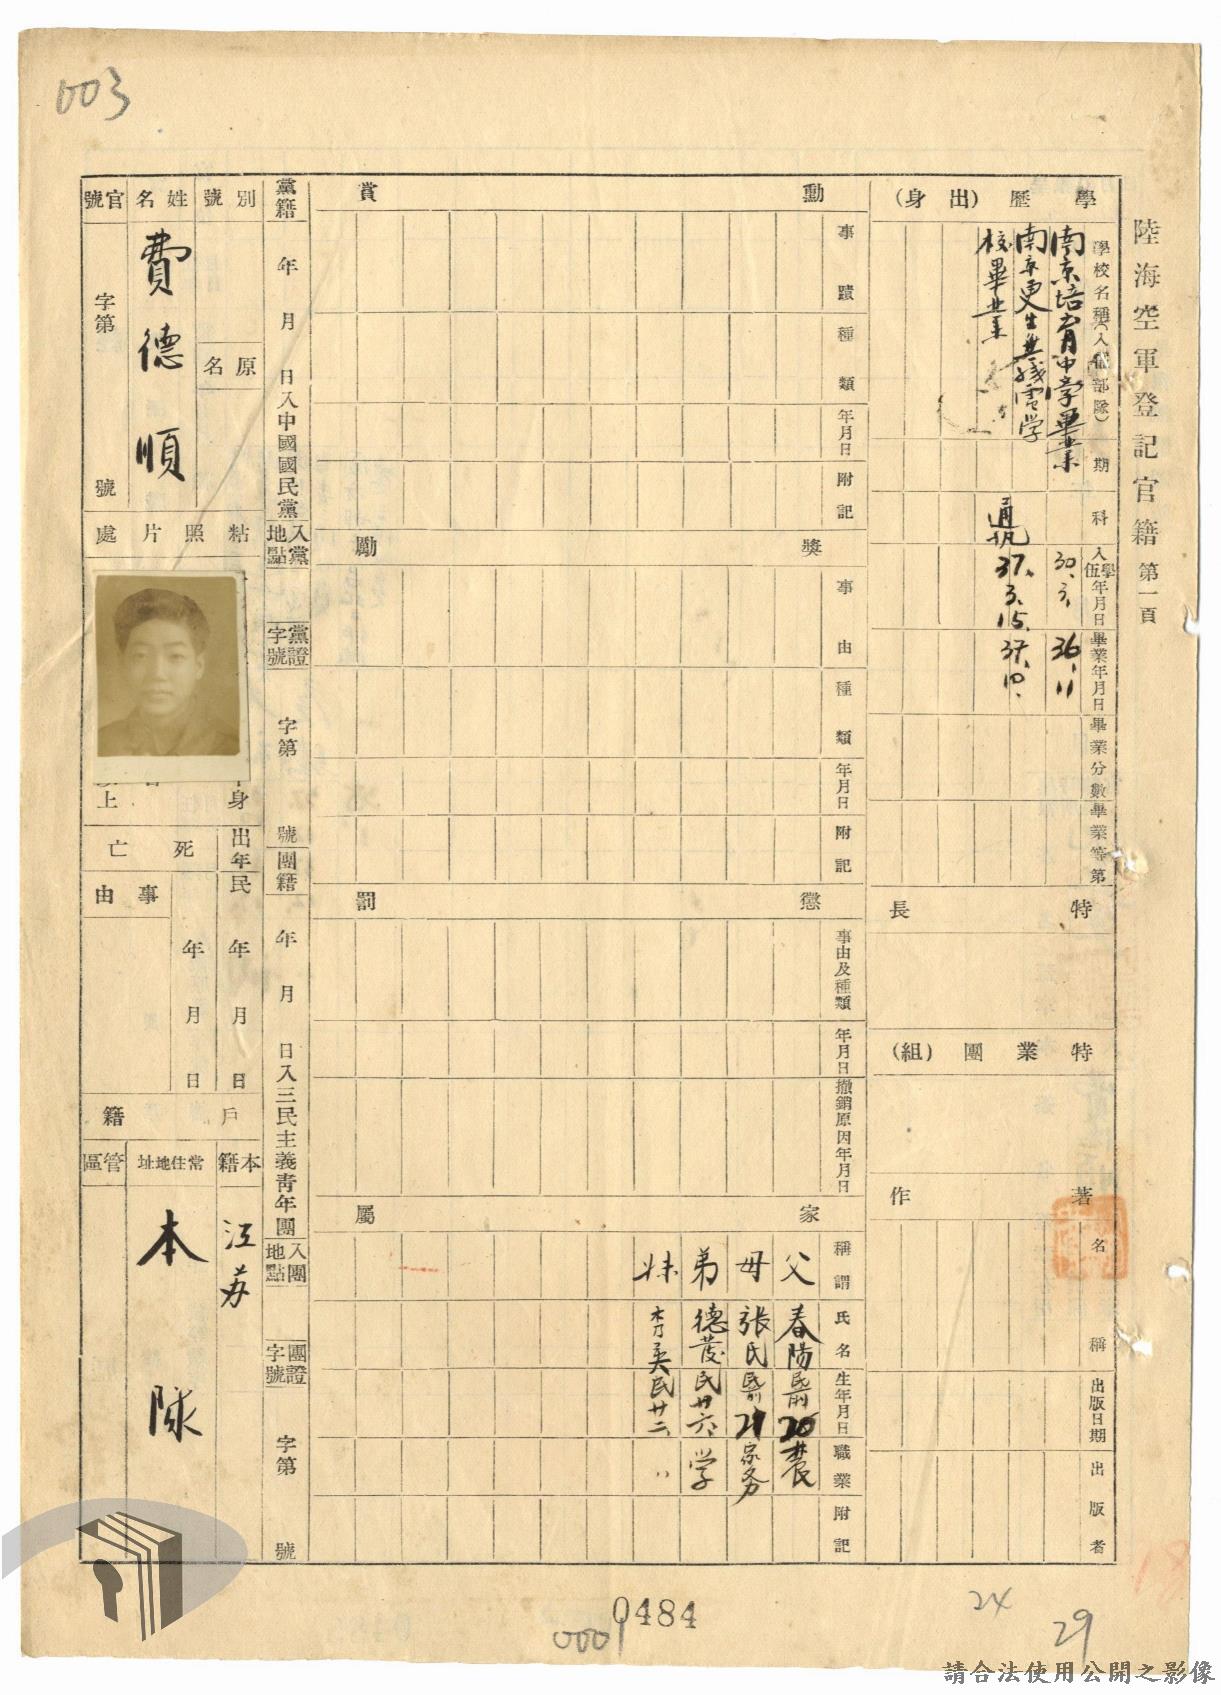 003
陸海空軍登記官籍 第一頁
學歷(出身)
學校名稱(入伍部隊)
期
科
入學伍年月日
畢業年月日
畢業分數
畢業等第
南京培育中學畢業
30.3.
36.11
南京更生無綫電学
校畢業
通訊
37.3.15.
37.10.
特長
特業團(組)
著作
名稱
出版日期
出版者
勳賞
事蹟
種類
年月日
附記
獎勵
事由
種類
年月日
附記
懲罰
事由及種類
年月日
撤銷原因年月日
家屬
稱謂
氏名
生年月日
職業
附記
父 春陽 民前 20 農
母 張氏 民前 21 家务
弟 德茂 民廿六、 学
妹 英 民廿二、 〃
黨籍
年 月 日入中國國民黨
入黨地點
黨證字號
字第 號
團籍
年 月 日入三民主義青年團
入團地點
團證字號
字第 號
別號
原名
姓名
費德順
官號
字第 號
粘照片處
身
上
出年
民 年 月 日
死亡
年 月 日
事由
戶籍
本籍
江苏
常住地址
本隊
管區
0484
0001
24
29
18
請合法使用公開之影像